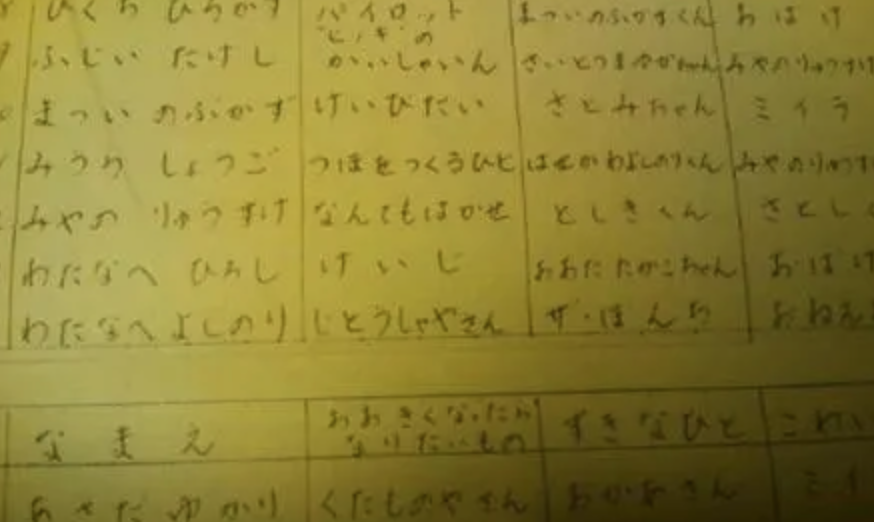 ひくち ひろかず パイロット まついのぶかずくん おばけ
"ピノキ"の
ふじい たけし かいしゃいん みやのりゅうすけ
まつい のぶかず けいびたい さとみちゃん ミイラ
みうら しょうご つぼをつくるひと はせがわよしのりくん みやのりゅうすけ
みやの りゅうすけ なんでもはかせ としきくん さとし
わたなべ ひろし けいじ おおたたかこちゃん おばけ
わたなべ よしのり じどうしゃやさん ザ・ぼんち おねえ
なまえ おおきくなったら すきなひと こわい
なりたいもの
あさだ ゆかり くだものやさん おかあさん ミイ